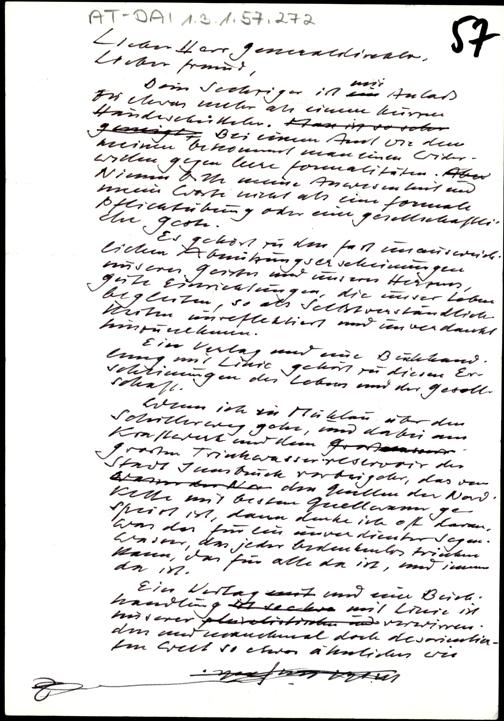 AT-DAI 1.3.1.57.272
57
Lieber Herr Generaldirektor,
Lieber Freund,
Dein Sechziger ist mir Anlaß
zu etwas mehr als einem kurzen
Händeschütteln. Man ist so sehr
geneigt, Bei einem Amt wie dem
meinen bekommt man einen Wider-
willen gegen leere Formalitäten. Aber
Nimm bitte meine Anwesenheit und
mein Wort nicht als eine formale
Pflichtübung oder eine gesellschaftli-
che Geste.
Es gehört zu den fast unausweich-
lichen Abnützungserscheinungen
unseres Geistes und unseres Herzens,
gute Einrichtungen, die unser Leben
begleiten, so als Selbstverständlich-
keiten unreflektiert und unverdankt
hinzunehmen.
Ein Verlag und eine Buchhand-
lung mit Linie gehört zu diesen Er-
scheinungen des Lebens und der Gesell-
schaft.
Wenn ich in Mühlau über den
Schillerweg gehe, und dabei am
Kraftwerk und dem
großen Trinkwasserreservoir der
Stadt Innsbruck vorbeigehe, das von
den Quellen der Nord-
kette mit bestem Quellwasser ge-
speist ist, dann denke ich oft daran,
was das für ein unverdienter Segen
Wasser, das jeder bedenkenlos trinken
kann, das für alle da ist, und immer
da ist.
Ein Verlag mit und eine Buch-
handlung mit Linie ist
unserer pluralistischen und verwirren-
den und manchmal doch desorientier-
ten Welt so etwas ähnliches wie